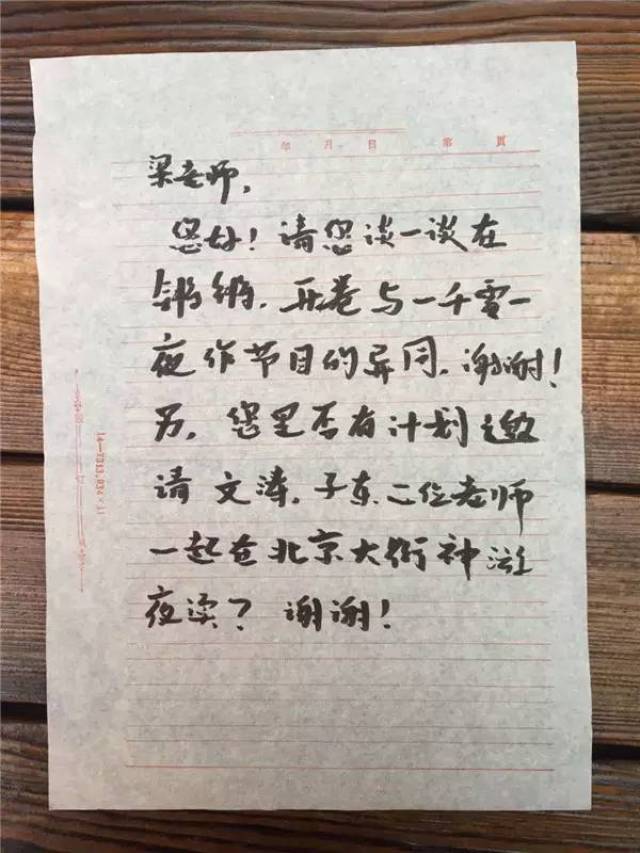 年 月 日 第 页
梁老师,
您好!请您谈一谈在
锵锵,开卷与一千零一
夜作节目的异同,谢谢!
另,您是否有计划邀
请文涛,子东二位老师
一起在北京大街神游
夜读?谢谢!